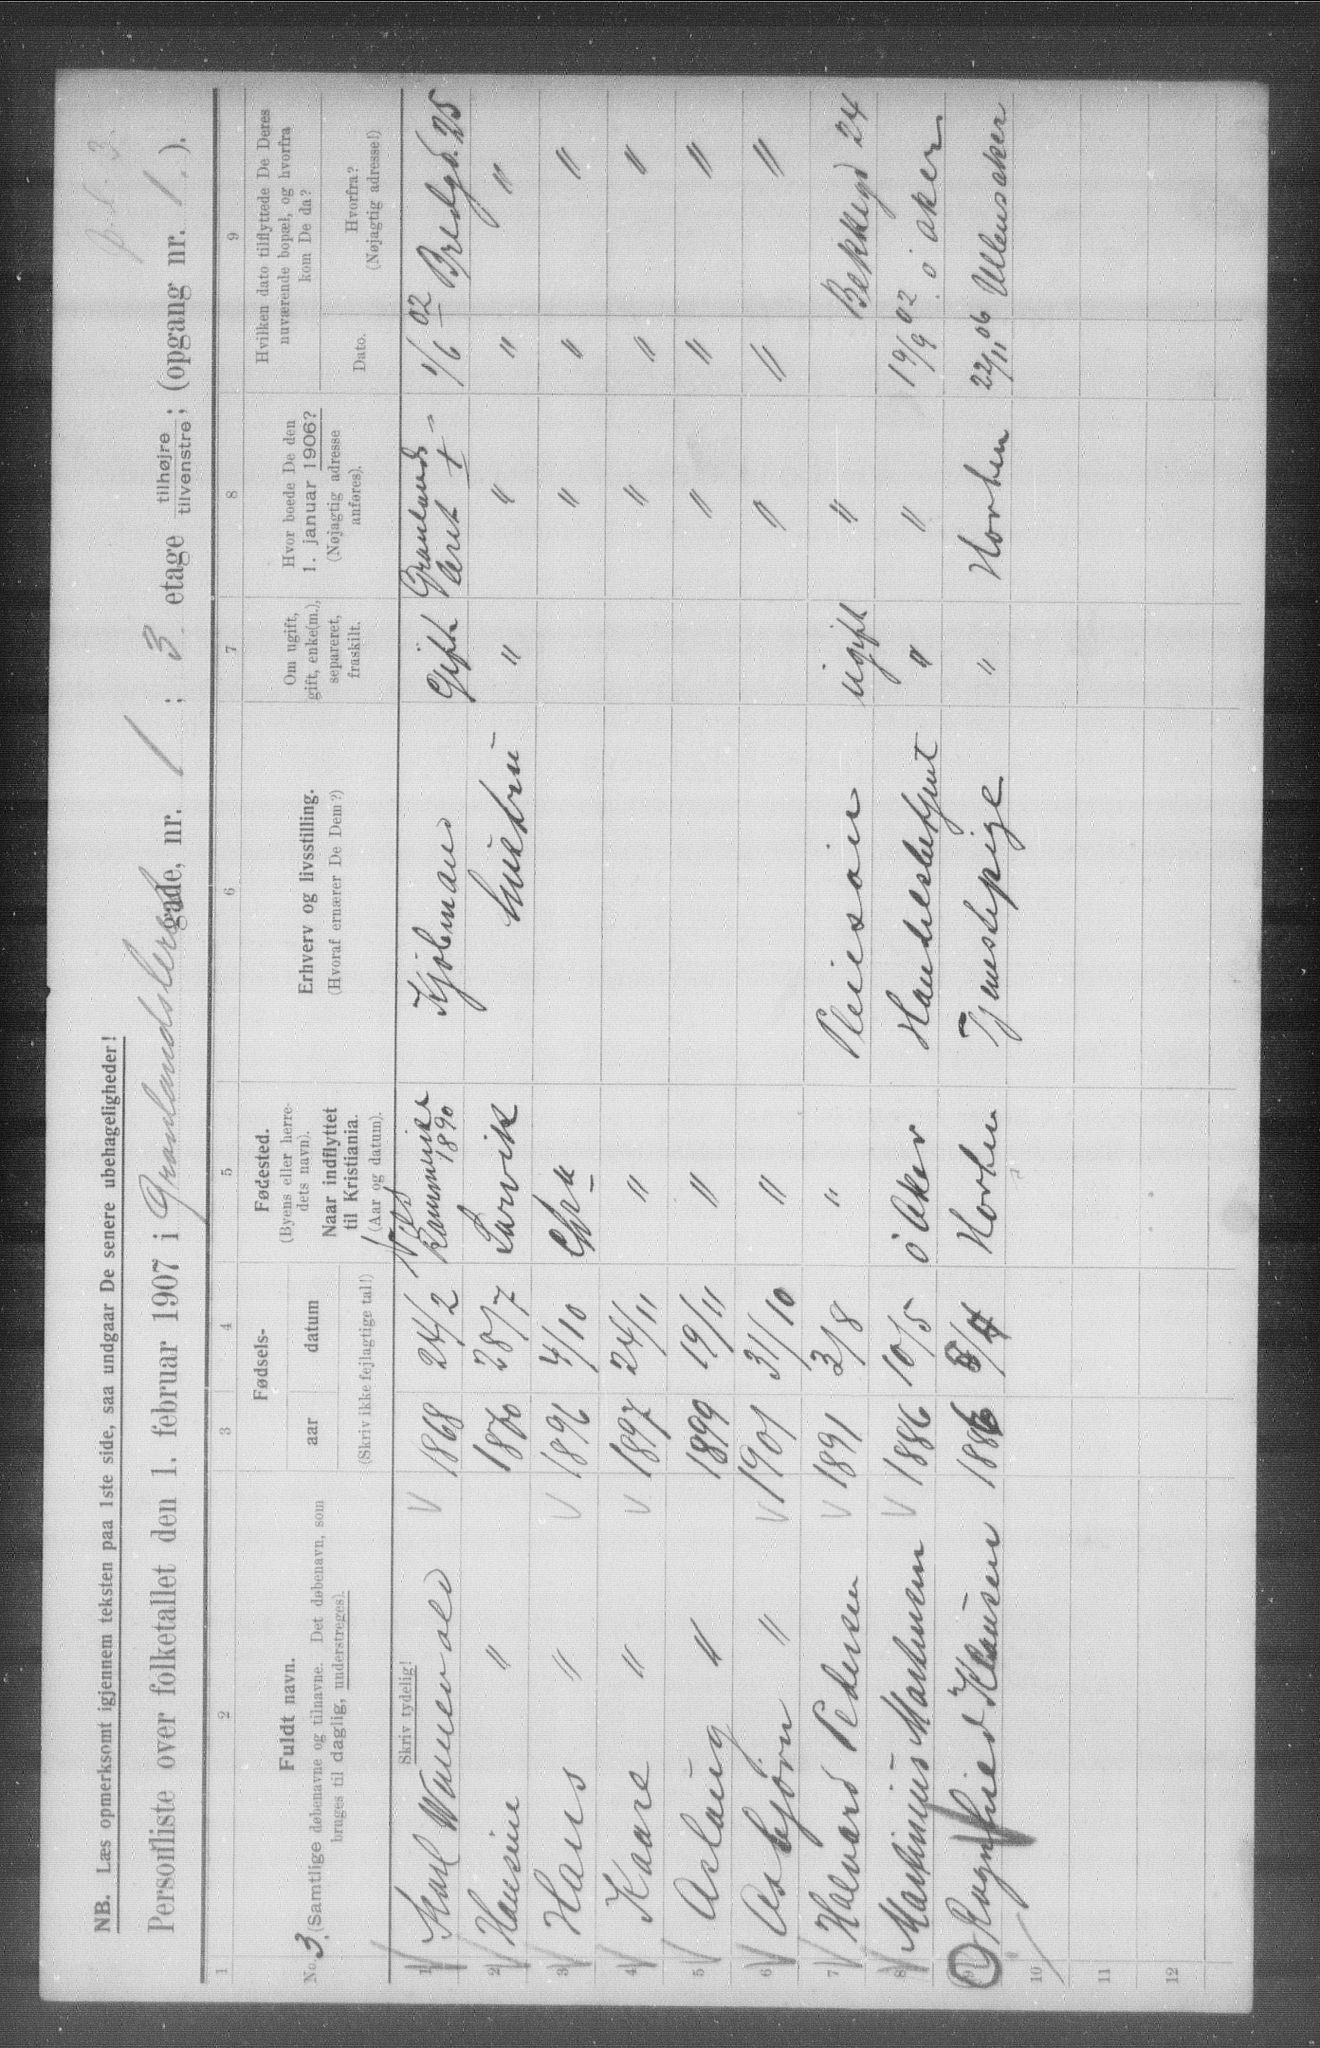 NB. Læs opmerksomt igjennem teksten paa 1ste side, saa undgaar De senere ubehageligheder!
Personliste over folketallet den 1. februar 1907 i Grønlandsleret gade, nr. 1 ; 3. etage tilhøjre tilvenstre; (opgang nr. 1.).
1 2 3 4 5 6 7 8 9
No. 3.
Fuldt navn.
(Samtlige døbenavne og tilnavne. Det døbenavn, som
bruges til daglig, understreges).
Fødsels-
aar datum
(Skriv ikke fejlagtige tal!)
Fødested.
(Byens eller herre-
dets navn).
Naar indflyttet
til Kristiania.
(Aar og datum).
Erhverv og livsstilling.
(Hvoraf ernærer De Dem?)
Om ugift,
gift, enke(m.),
separeret,
fraskilt.
Hvor boede De den
1. januar 1906?
(Nøjagtig adresse
anføres).
Hvilken dato tilflyttede De Deres
nuværende bopæl, og hvorfra
kom De da?
Dato.
Hvorfra?
(Nøjagtig adresse!)
Skriv tydelig!
1 Karl 1868 24/2 1890 Kjøbmand Gift Grønlands leret 1 1/6 02 Bredgd. 25
2 Hansine " 1870 28/7 Larvik hustru " " " "
3 Hans " 1896 4/10 Chra " " "
4 Kaare " 1897 24/11 " " " "
5 Aslaug " 1899 19/11 " " " "
6 Asbjørn " 1901 31/10 " " " "
7 Halvard Pedersen 1891 3/8 " ugift " Bekkegd 24
8 Martinius Martinsen 1886 10/5 ø Aker Handelsbetjent " " 19/9 02 ø aker
9 Ragnhild Klausen Tjenestepige " 22/11 06 Ullensaker
10
11
12